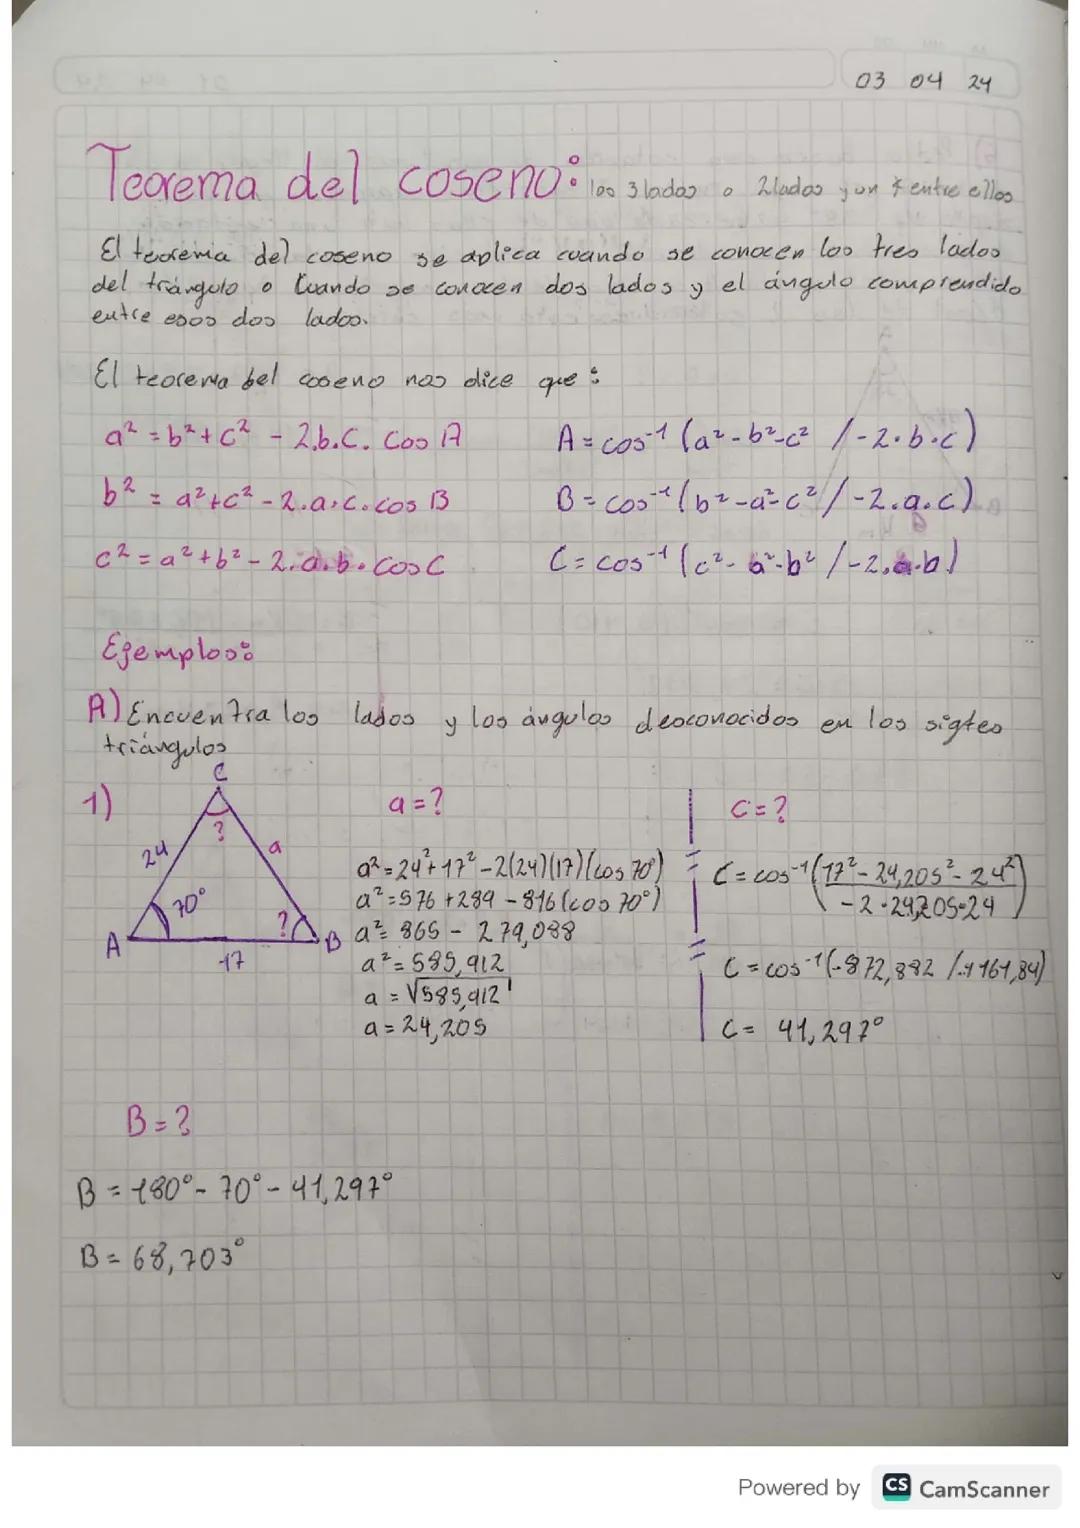 03 04 24
Teorema del coseno: los 3 lados o 2 lados y un ∡ entre ellos
El teorema del coseno se aplica cuando se conocen los tres lados
del triángulo o Cuando se conocen dos lados y el ángulo comprendido
entre esos dos lados.
El teorema del coseno nos dice que:
a² = b² + c² - 2.b.c. Cos A
A = cos⁻¹ (a² - b² - c² / -2.b.c)
b² = a² + c² - 2.a.c.cos B
B = cos⁻¹ (b² - a² - c² / -2.a.c)
c² = a² + b² - 2.a.b.cos C
C = cos⁻¹ (c² - a² - b² / -2.a.b)
Ejemplos:
A) Encuentra los lados y los ángulos desconocidos en los sigtes
triángulos
1)
C
?
24
a
70°
?
A
B
17
a = ?
a² = 24² + 17² - 2(24)(17)(cos 70°)
a² = 576 + 289 - 816 (cos 70°)
a² = 865 - 279,088
a² = 585,912
a = √585,912
a = 24,205
C = ?
C = cos⁻¹ (17² - 24,205² - 24² / -2·24,205·24)
C = cos⁻¹ (-872,882 / -1161,84)
C = 41,297°
B = ?
B = 180° - 70° - 41,297°
B = 68,703°
Powered by CS CamScanner